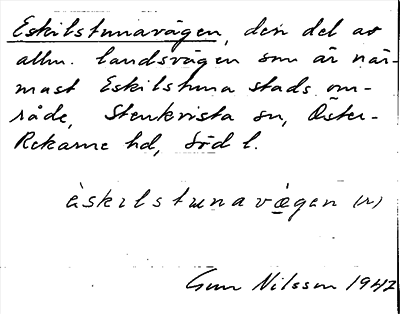 Eskilstunavägen, den del av
allm. landsvägen som är när-
mast Eskilstuna stads om-
råde, Stenkvista sn, Öster-
Rekarne hd, Söd l.
èskilstunavægen (n)
Gun Nilsson 1942